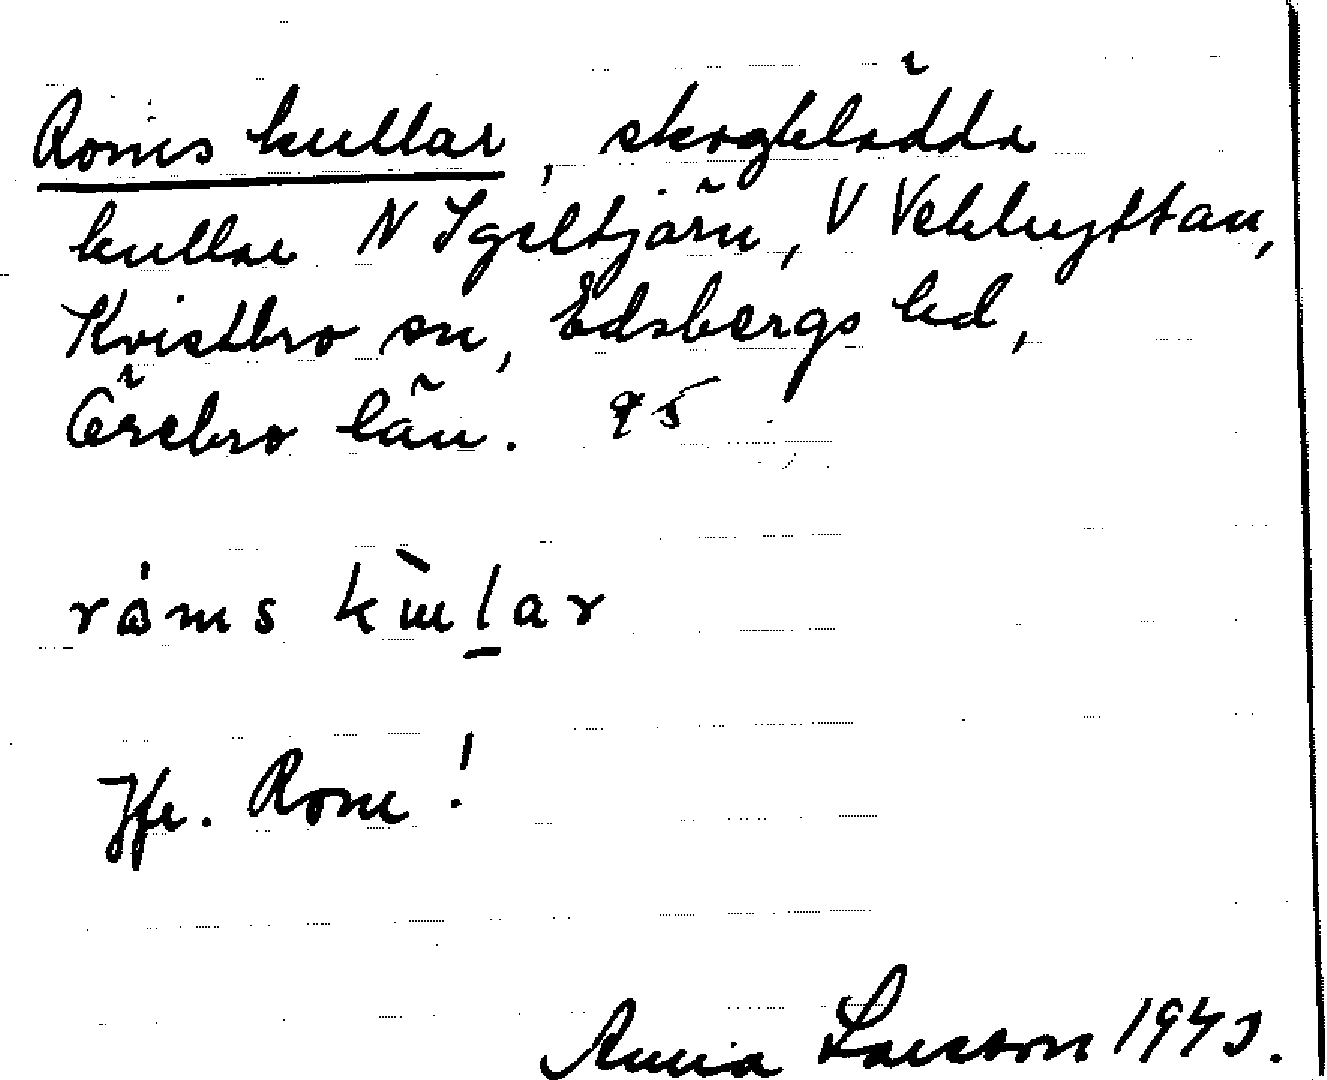 Roms kullar, skogklädda
kullar N Igeltjärn, V Vekhyttan,
Kvistbro sn, Edsbergs hd,
Örebro län. 95
róms kɯllar
Jfr. Rom!
Anna Larsson 1943.